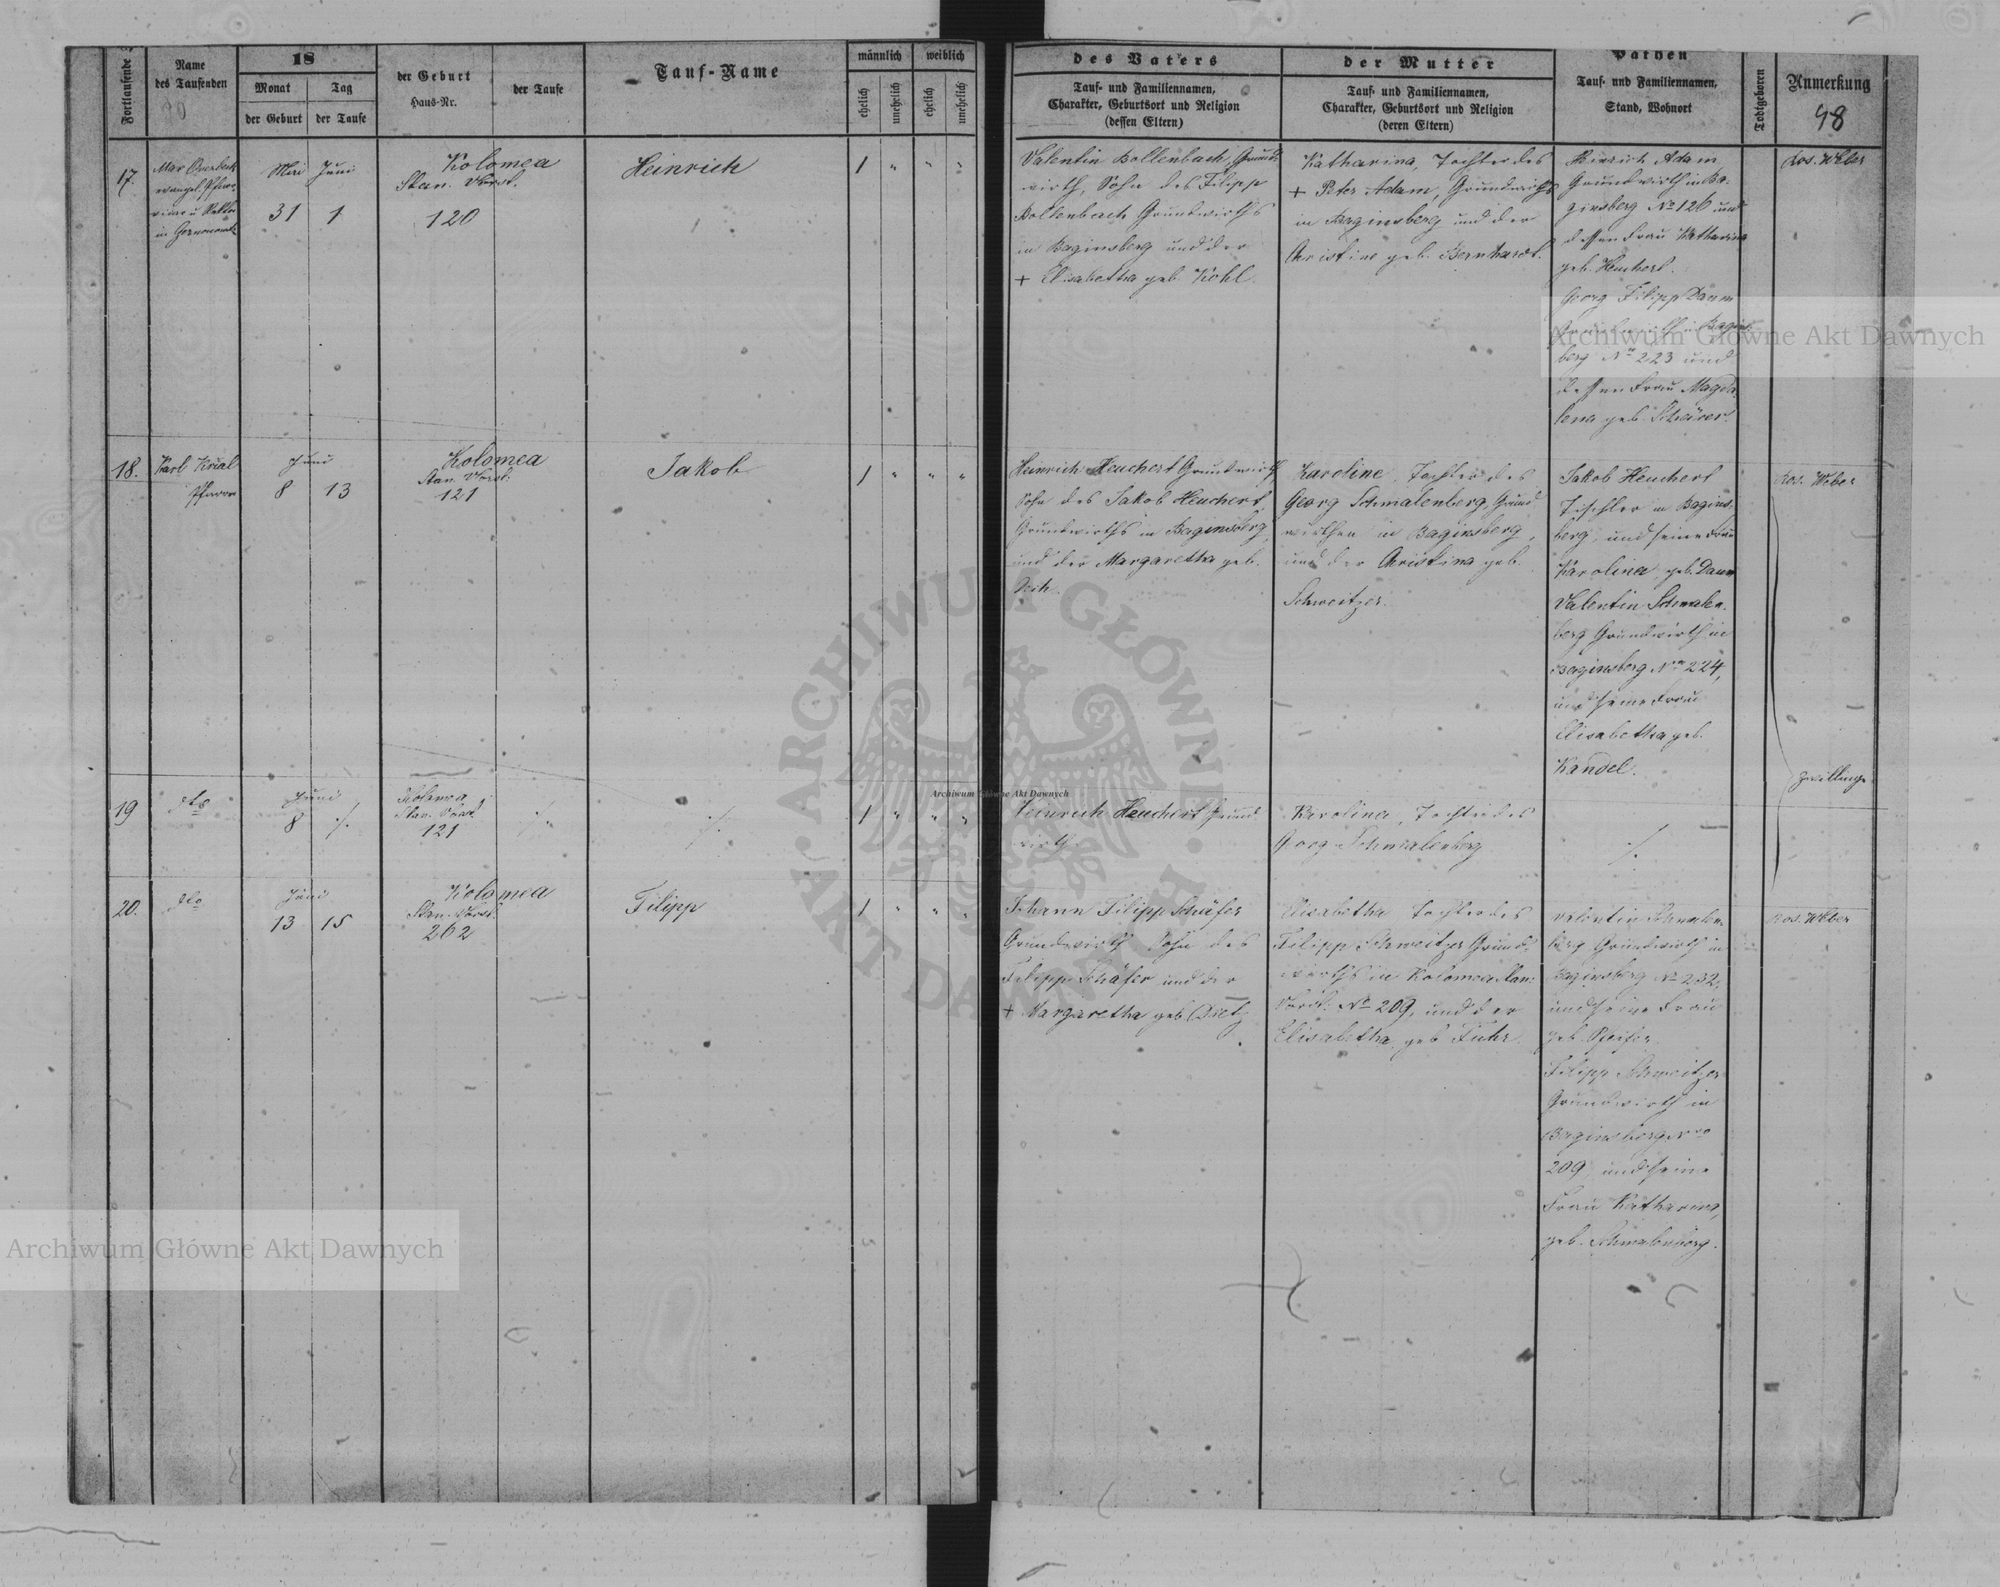 Fortlaufende
Name
des Taufenden
18
Monat
Tag
der Geburt
der Taufe
der Geburt
Haus-Nr.
der Taufe
Tauf-Name
männlich
weiblich
ehelich
unehelich
ehelich
unehelich
des Vaters
Tauf- und Familiennamen,
Charakter, Geburtsort und Religion
(dessen Eltern)
der Mutter
Tauf- und Familiennamen,
Charakter, Geburtsort und Religion
(deren Eltern)
Pathen
Tauf- und Familiennamen,
Stand, Wohnort
Todtgeboren
Anmerkung
48
17.
evangel. Pfarr-
Mai Juni
31 1
Kolomea
Stan. Vorst.
120
Heinrich
1 " " "
Valentin Bollenbach, Grund-
wirth, Sohn des Filipp
Bollenbach Grundwirths
in Baginsberg und der
+ Elisabetha geb. Kohl.
Katharina, Tochter des
+ Peter Adam, Grundwirths
in Baginsberg und der
Christine geb. Bernhardt.
Heinrich Adam
Grundwirth in Ba-
ginsberg No 120 und
dessen Frau Katharina
geb. Heuchert.
Georg Filipp Daum
Grundwirth in Bagins-
berg No 223 und
dessen Frau Magda-
lena geb.
Ros. Weber
18.
Karl Krial
Pfarrer
Juni
8 13
Kolomea
Stan. Vorst.
121
Jakob
1 " " "
Heinrich Heuchert Grundwirth,
Sohn des Jakob Heuchert,
Grundwirths in Baginsberg,
und der Margaretha geb.
Karoline, Tochter des
Georg Schmalenberg, Grund-
wirthen in Baginsberg,
und der Christina geb.
Schweitzer.
Jakob Heuchert
Tischler in Bagins-
berg, und seine Frau
Karolina, geb. Daum
Valentin Schmalen-
berg Grundwirth in
Baginsberg Nro 224,
und seine Frau
Elisabetha geb.
Kandel.
Ros. Weber
Zwillinge
19
dto
Juni
8 ./.
Kolomea
Stan. Vorst.
121
./.
./.
1 " " "
Heinrich Heuchert Grund-
wirth
Karolina, Tochter des
Georg Schmalenberg
./.
20.
dto
Juni
13 15
Kolomea
Stan. Vorst.
262
Filipp
1 " " "
Johann Filipp Schäfer
Grundwirth Sohn des
Filipp Schäfer und der
+ Margaretha geb.
Elisabetha Tochter des
Filipp Schweitzer Grund-
wirths in Kolomea Stan.
Vorst. No 209, und der
Elisabetha geb Fuhr.
Valentin Schmalen-
berg Grundwirth in
Baginsberg No 232,
und seine Frau
geb. Pfeifer.
Filipp Schweitzer
Grundwirth in
Baginsberg Nro
209, und seine
Frau Katharina,
geb. Schmalenberg.
Ros. Weber
Archiwum Główne Akt Dawnych
Archiwum Główne Akt Dawnych
Archiwum Główne Akt Dawnych
ARCHIWUM GŁÓWNE AKT DAWNYCH